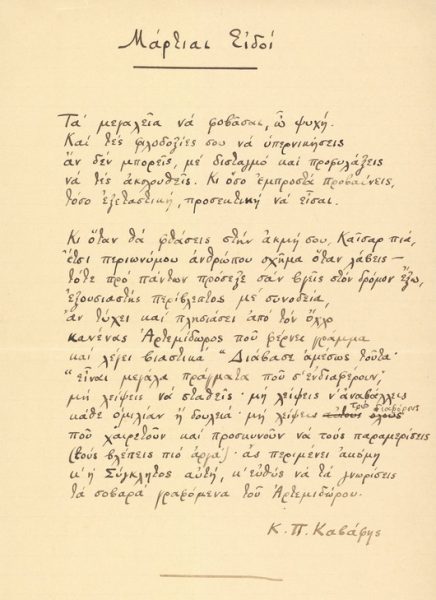 Μάρτιαι Εἰδοί
Τὰ μεγαλεῖα νὰ φοβᾶσαι, ὦ ψυχή.
Καὶ τὲς φιλοδοξίες σου νὰ ὑπερνικήσεις
ἂν δὲν μπορεῖς, μὲ δισταγμὸ καὶ προφυλάξεις
νὰ τὲς ἀκολουθεῖς. Κι ὅσο ἐμπροστὰ προβαίνεις,
τόσο ἐξεταστική, προσεκτικὴ νὰ εἶσαι.
Κι ὅταν θὰ φθάσεις στὴν ἀκμή σου, Καῖσαρ πιά,
ἔτσι περιωνύμου ἀνθρώπου σχῆμα ὅταν λάβεις —
τότε πρὸ πάντων πρόσεξε σὰν βγεῖς στὸν δρόμον ἔξω,
ἐξουσιαστὴς περίβλεπτος μὲ συνοδεία,
ἂν τύχει καὶ πλησιάσει ἀπὸ τὸν ὄχλο
κανένας Ἀρτεμίδωρος ποὺ φέρνει γράμμα
καὶ λέγει βιαστικὰ "Διάβασε ἀμέσως τοῦτα·
"εἶναι μεγάλα πράγματα ποὺ σ' ἐνδιαφέρουν",
μὴ λείψεις νὰ σταθεῖς· μὴ λείψεις ν' ἀναβάλλεις
κάθε ὁμιλίαν ἢ δουλειά· μὴ λείψεις τοὺς διαφόρους
ποὺ χαιρετοῦν καὶ προσκυνοῦν νὰ τοὺς παραμερίσεις
(τοὺς βλέπεις πιὸ ἀργά)· ἂς περιμένει ἀκόμη
κ' ἡ Σύγκλητος αὐτή, κ' εὐθὺς νὰ τὰ γνωρίσεις
τὰ σοβαρὰ γραφόμενα τοῦ Ἀρτεμιδώρου.
Κ. Π. Καβάφης